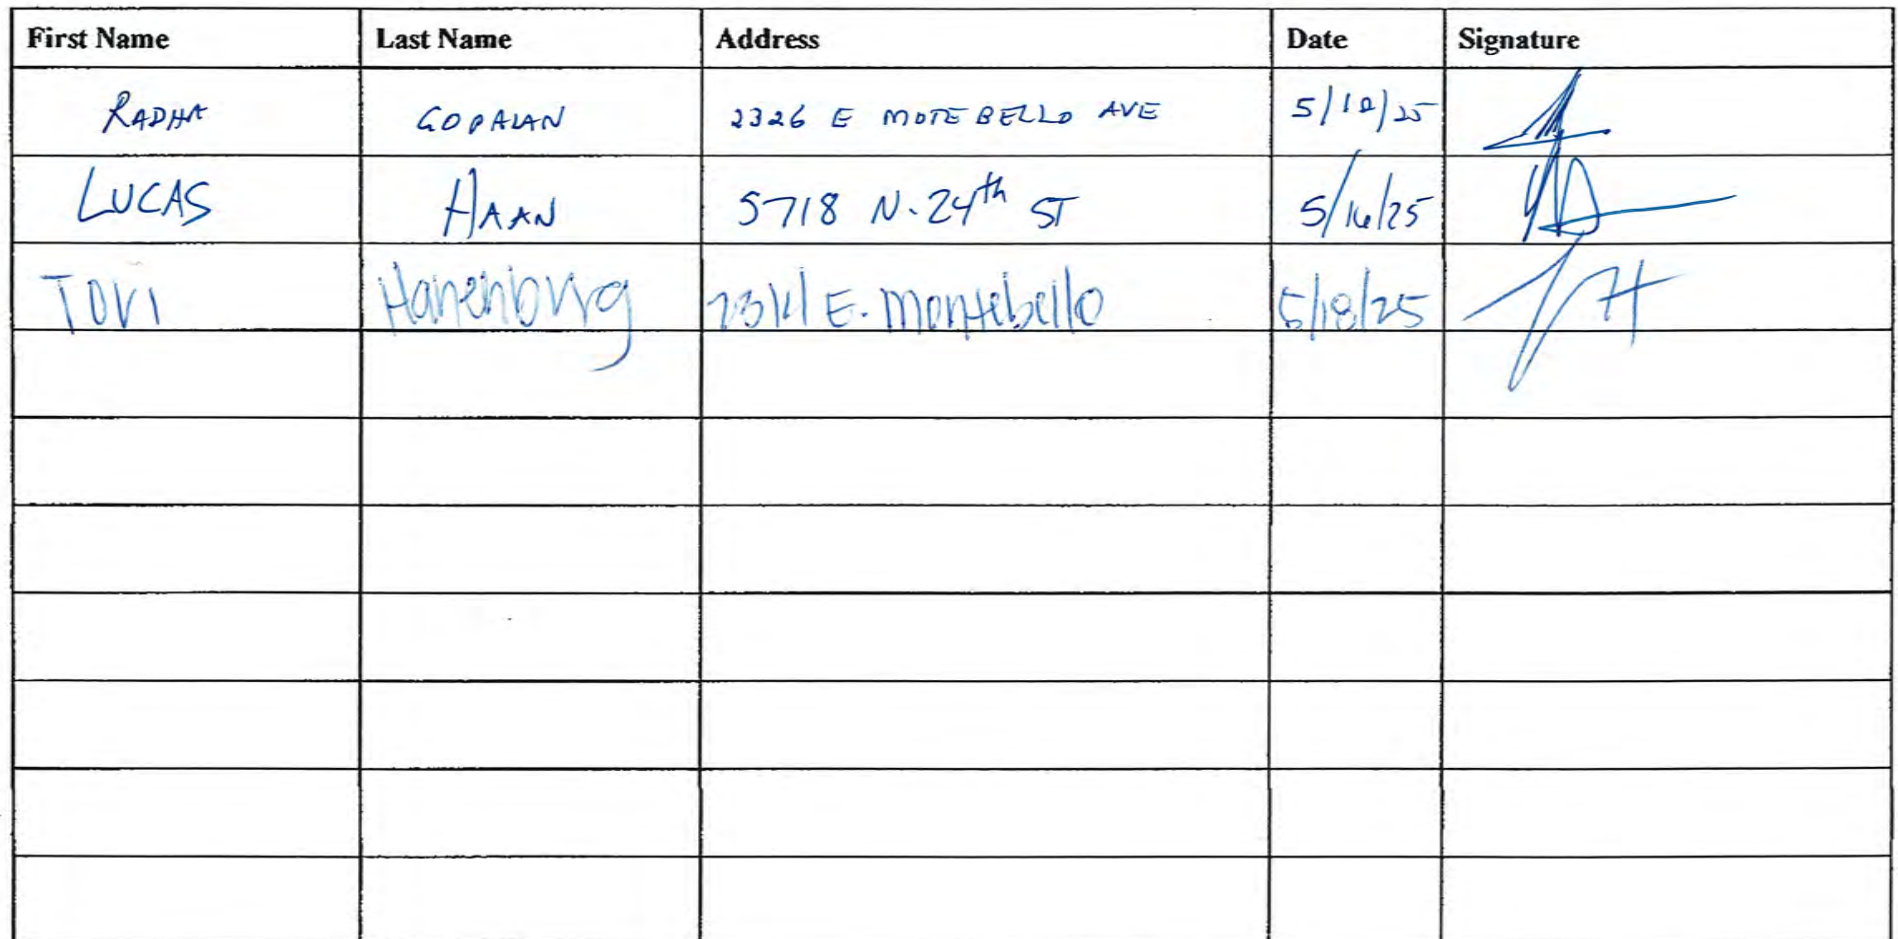 First Name Last Name Address Date Signature
RADHA GOPALAN 2326 E MOTEBELLO AVE
LUCAS HAAN 5718 N. 24th ST 5/16/25
TORI Hanenburg E. Montebello 5/18/25